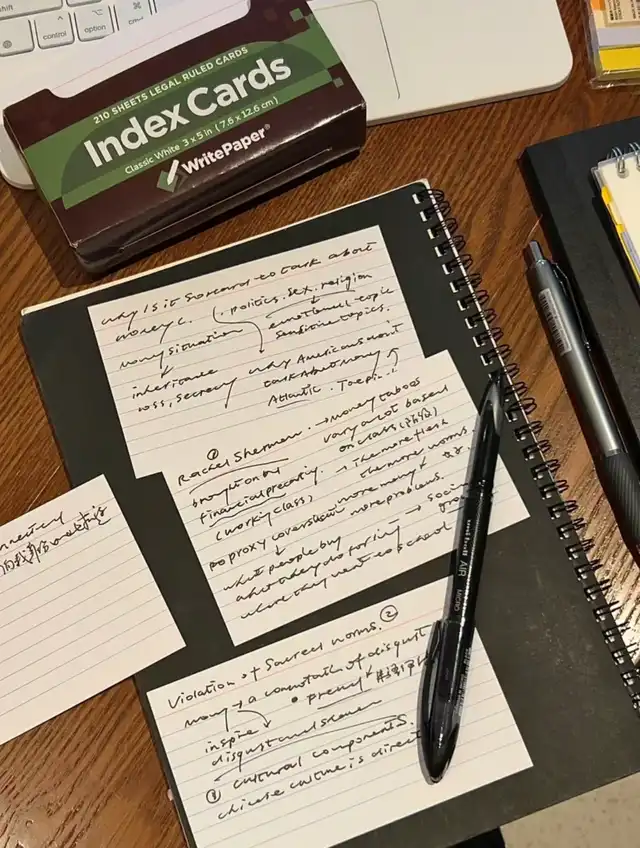 shift
control
option
cmd
210 SHEETS LEGAL RULED CARDS
Index Cards
Classic White 3 x 5 in (7.6 x 12.6 cm)
WritePaper®
why is it so hard to talk about
money
politics. sex. religion
money situation
emotional topic
sensitive topics.
inheritance
loss, secrecy
why Americans don't
talk about money
Atlantic. Joe Pin
①
Rachel Sherman: → money taboos
brought on by
vary a lot based
on class
financial precarity.
→ the more flesh
the more norms
(working class)
more money
more problems.
→ proxy conversation
what people buy
what they do for living
where they went to school
→ social
Violation of Sacred norms. ②
money → a connotation of disgust
inspire
disgust and shame
③ cultural components.
chinese culture is direct
uni-ball
AIR
MICRO